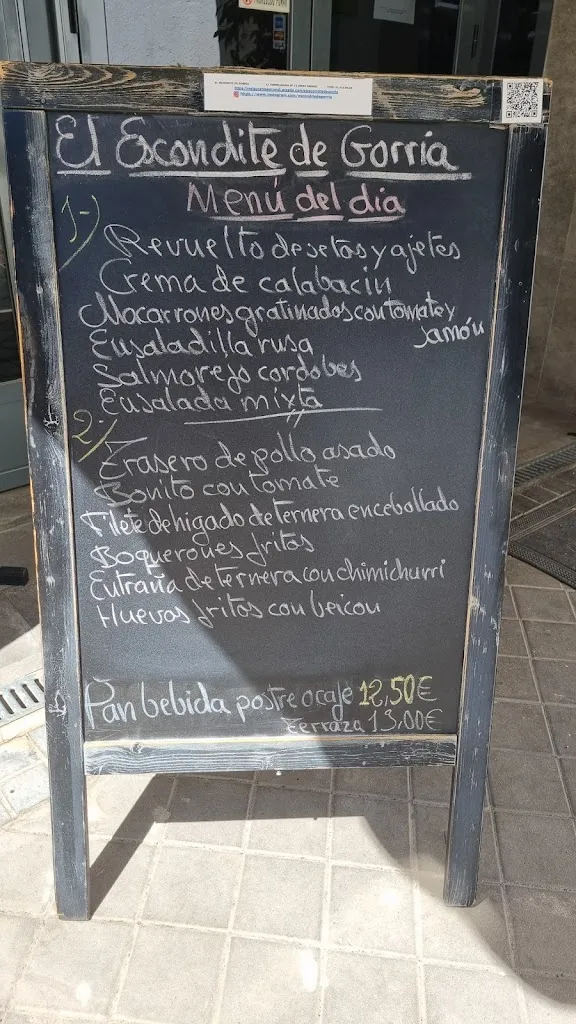 El Escondite de Gorria
Menú del dia
1-)
Revuelto de setas y ajetes
Crema de calabacin
Macarrones gratinados con tomate y
Jamón
Ensaladilla rusa
Salmorejo cordobes
Ensalada mixta
2-)
Trasero de pollo asado
Bonito con tomate
Filete de higado de ternera encebollado
Boquerones fritos
Entraña de ternera con chimichurri
Huevos fritos con beicon
Pan bebida postre o café 12,50€
Terraza 13,00€